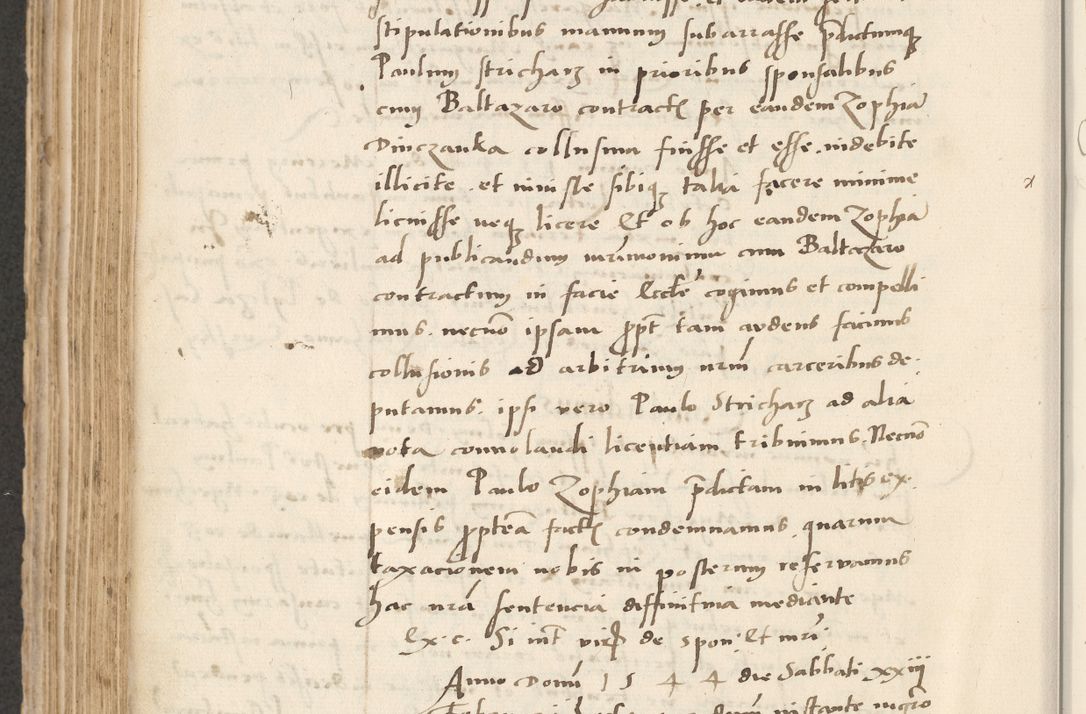 stipulationibus manuum subarrasse p̄dictumq̨
Paulum Stricharz in prioribus sponsalibus
cum Baltazaro contract̄ per eandem Zophiā
Dinczanka collusum fuisse et esse indebite
illicite et iniuste sibiq̨ talia facere minime
licuisse neq̨ licere Et ob hoc eandem Zophiā
ad publicandum mr̄imonium cum Baltazaro
contractum in facie Eccle͂ cogimus et compelli
mus. necnō ipsam ꝓpt̄ tam ardens facinus
collusionis ad arbitrium nr̄m carceribus de
putamus. ipsi vero Paulo Stricharz ad alia
vota convolandi licentiam tribuimus. Necnō
eidem Paulo Zophiam p̄dictam in litis ex
pensis ꝓptereā fact̄ condemnamus. quarum
taxacionem nobis in posterum reservamus
hac nr̄a sentencia diffinitiva mediante
Ex. c. Si int̄ virū de spon. Et mr̄i
Anno Domī 1 5 4 4 die Sabbati xxiii